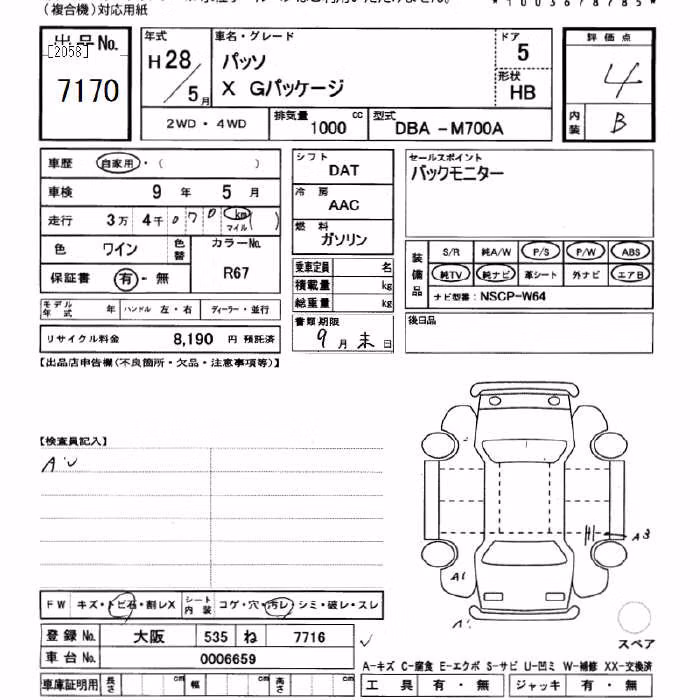 （複合機）対応用紙
出品No.
[2058]
7170
年式
H28/5月
車名・グレード
パッソ
X Gパッケージ
ドア
5
形状
HB
評価点
4
内装
B
2WD・4WD
排気量
1000 cc
型式
DBA -M700A
車歴 自家用・( )
車検 9 年 5 月
走行 3万 4千 0 7 0 km マイル ( )
色 ワイン 色替
カラーNo.
R67
保証書 有 - 無
モデル年式 年 ハンドル 左・右 ディーラー・並行
リサイクル料金 8,190 円 預託済
シフト
DAT
冷房
AAC
燃料
ガソリン
乗車定員 名
積載量 kg
総重量 kg
書類期限
9月末日
セールスポイント
バックモニター
装備品
S/R 純A/W P/S P/W ABS
純TV 純ナビ 革シート 外ナビ エアB
ナビ型番：NSCP-W64
後日品
【出品店申告欄（不良箇所・欠品・注意事項等）】
【検査員記入】
A3
A1
FW キズ・トビ石・割レX
シート内装 コゲ・穴・汚レ・シミ・破レ・スレ
登録No. 大阪 535 ね 7716
車台No. 0006659
車庫証明用 長さ cm 幅 cm 高さ cm
スペア
A-キズ C-腐食 E-エクボ S-サビ U-凹ミ W-補修 XX-交換済
工具 有・無
ジャッキ 有・無